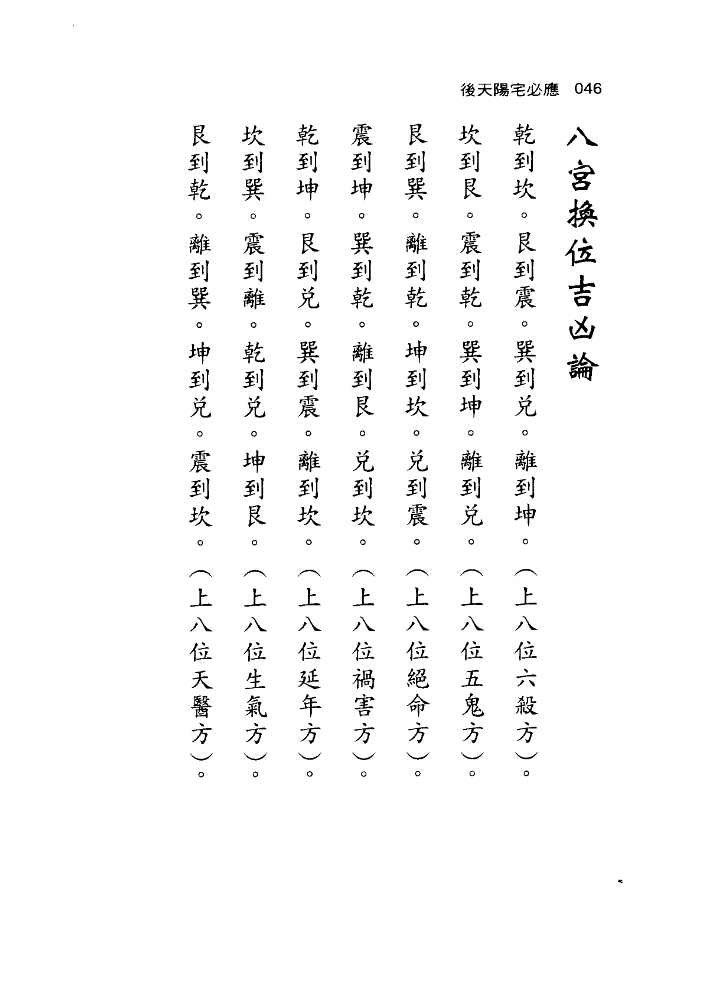 後天陽宅必應 046
八宮換位吉凶論
乾到坎。艮到震。巽到兌。離到坤。（上八位六殺方）。
坎到艮。震到乾。巽到坤。離到兌。（上八位五鬼方）。
艮到巽。離到乾。坤到坎。兌到震。（上八位絕命方）。
震到坤。巽到乾。離到艮。兌到坎。（上八位禍害方）。
乾到坤。艮到兌。巽到震。離到坎。（上八位延年方）。
坎到巽。震到離。乾到兌。坤到艮。（上八位生氣方）。
艮到乾。離到巽。坤到兌。震到坎。（上八位天醫方）。